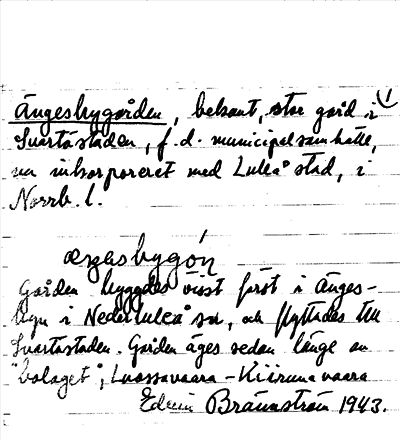 Ängesbygården, bekant, stor gård i
Svartöstaden, f.d. municipalsamhälle,
nu inkorporerat med Luleå stad, i
Norrb. l.
Gården byggdes visst först i Änges-
byn i Nederluleå sn, och flyttades till
Svartöstaden. Gården äges sedan länge av
"bolaget", Luossavaara-Kiirunavaara
Edvin Brännström 1943.